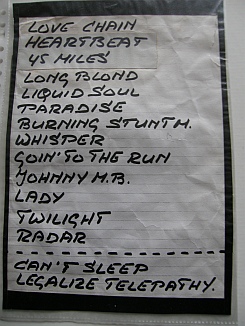 LOVE CHAIN
HEARTBEAT
45 MILES
LONG BLOND
LIQUID SOUL
PARADISE
BURNING STUNT M.
WHISPER
GOIN' TO THE RUN
JOHNNY M.B.
LADY
TWILIGHT
RADAR
CAN'T SLEEP
LEGALIZE TELEPATHY.